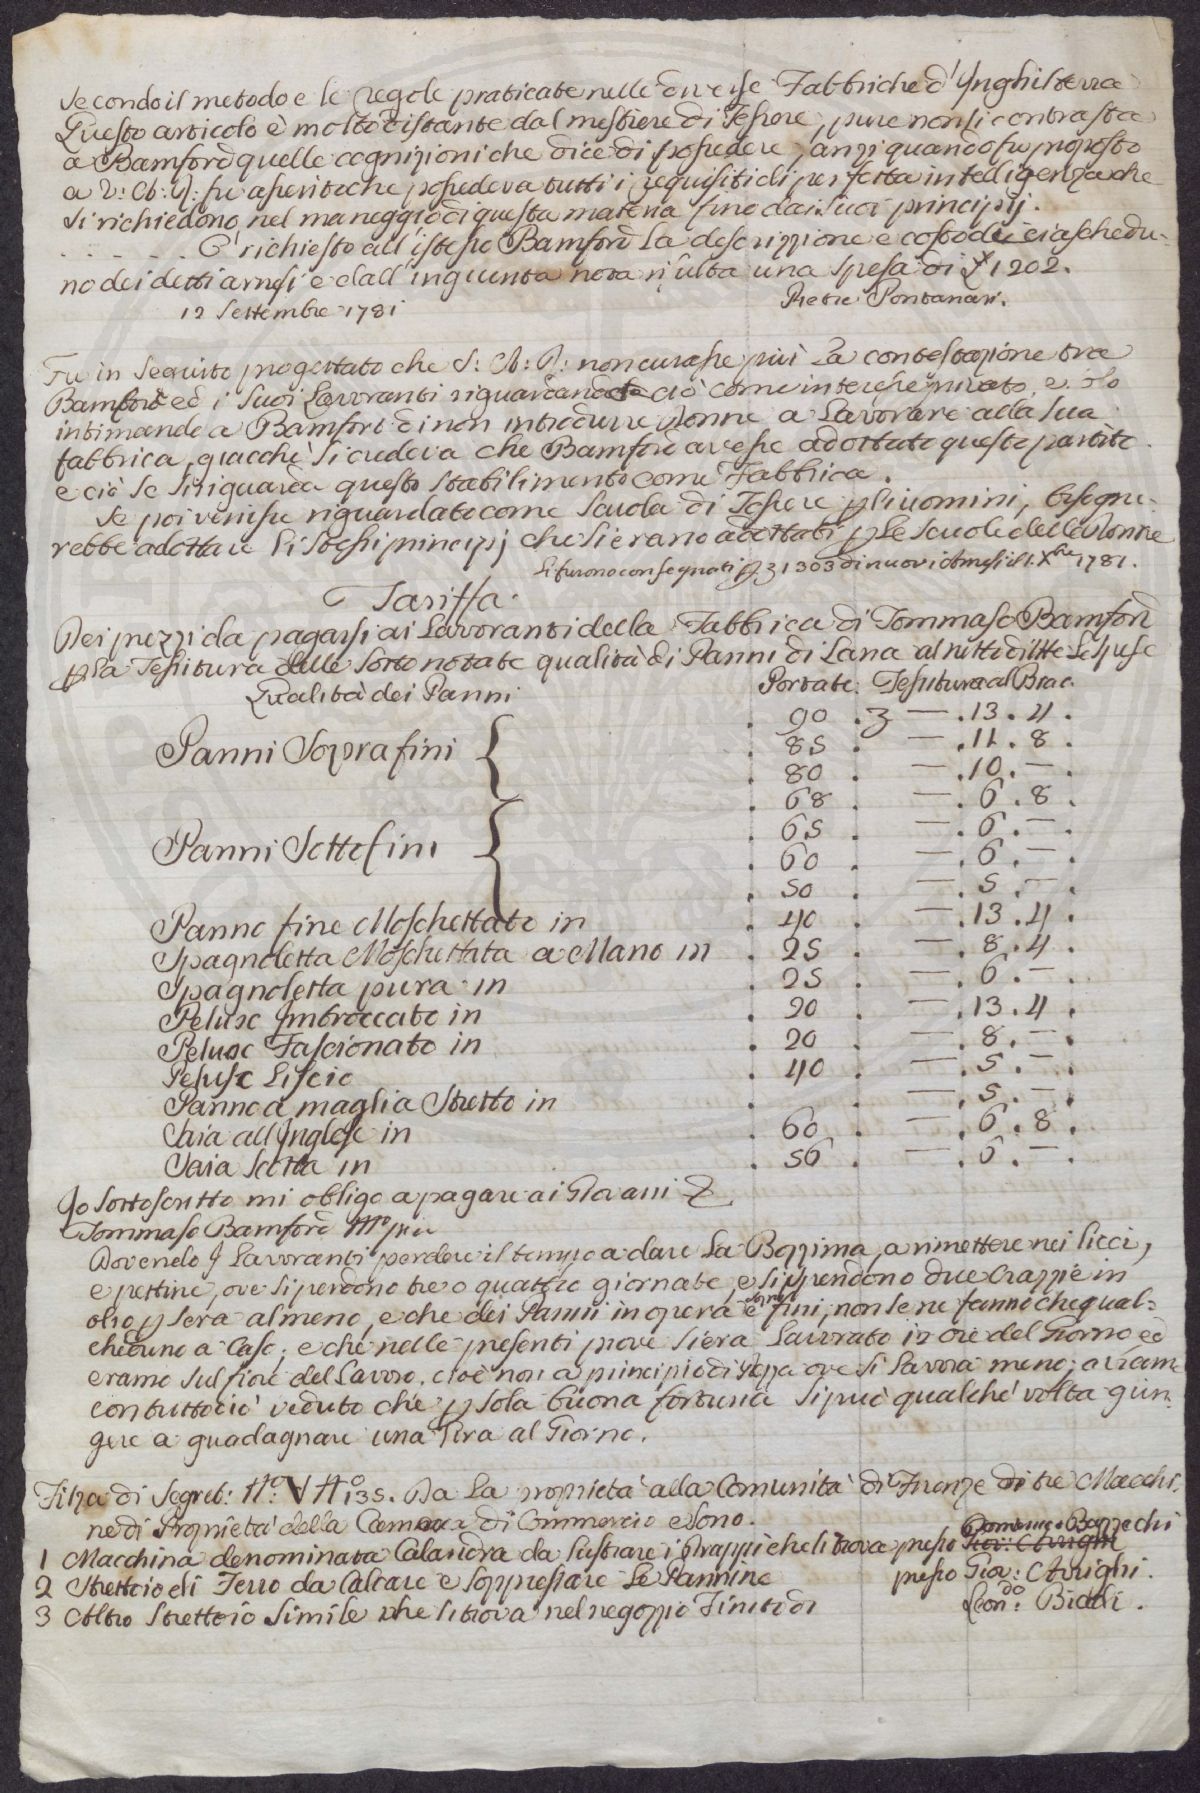 Secondo il metodo e le regole praticate nelle diverse Fabbriche d'Inghilterra
Questo articolo è molto distante dal mestiere di Tessere, pure non si contrasta
a Bamford quelle cognizioni che dice di possedere, anzi quando fu proposto
a V: A: R: fu asserito che possedeva tutti i requisiti di perfetta intelligenza che
si richiedono nel maneggio di questa materia fino dai suoi principj.
. . . . . . E' richiesto all'istesso Bamford la descrizzione e costo di ciaschedu-
no dei detti arnesi e dall' inquenta nota risulta una spesa di £ 1202.
12 Settembre 1781 Pietro Pontanari.
Fu in seguito progettato che S: A: R: non curasse più la contestazione tra
Bamford ed i suoi Lavoranti riguardando ciò come interesse privato, e solo
intimando a Bamford di non introdurre donne a Lavorare alla sua
fabbrica, giacchè si credeva che Bamford avesse adottato questo partito.
e ciò se si riguarda questo stabilimento come Fabbrica.
Se poi venisse riguardato come Scuola di Tessere p gli uomini, bisogne-
rebbe adottare li stessi principj che si erano adottati p le Scuole delle Donne
Li furono consegnati p 31303 di nuovi Arnesi il 1. Xbre 1781.
Tariffa.
Dei prezzi da pagarsi ai Lavoranti della Fabbrica di Tommaso Bamford
p la Tessitura delle sotto notate qualità di Panni di Lana al netto di tte le spese
Qualità dei Panni Portate: Tessitura al Brac.
. 90 . 3 — . 13 . 4 .
Panni Soprafini { . 85 . — . 11 . 8 .
. 80 . — . 10 . — .
. 68 . — . 6 . 8 .
. 65 . — . 6 . — .
Panni Sottofini { . 60 . — . 6 . — .
. 50 . — . 5 . — .
Panno fine Moschettato in . 40 . — . 13 . 4 .
Spagnoletta Moschettata a Mano in . 25 . — . 8 . 4 .
Spagnoletta pura in . 25 . — . 6 . — .
Peluzo Imbroccato in . 20 . — . 13 . 4 .
Peluzo Fascionato in . 20 . — . 8 . — .
Peluso Liscio . 40 . — . 5 . — .
Panno a maglia Stretto in . . — . 5 . — .
Saia all'Inglese in . 60 . — . 6 . 8 .
Saia Scotta in . 56 . — . 6 . — .
Io sottoscritto mi obligo a pagare ai Giovani
Tommaso Bamford Mo ppia
Dovendo I Lavoranti perdere il tempo a dare la Bozzima, a rimettere nei licci,
e pettine, ove si perdono tre o quattro giornate, e si spendono due Crazzie in
olio p sera almeno, e che dei Panni in opera sopra e fini, non se ne fanno che qual=
cheduno a Caso; e che nelle presenti prove si era Lavorato 12 ore del Giorno ed
eramo sul fiore del Lavoro, cioè non a principio di pezza ove si lavora meno; aviamo
contuttociò veduto che p sola buona fortuna si può qualche volta giun-
gere a guadagnare una Lira al Giorno.
Filza di Segret: No: V No 135. Da la proprietà alla Comunità di Firenze di tre Macchi-
ne di Proprietà della Camera di Commercio e sono.
Domenico Bazzechi
1 Macchina denominata Calandra da lustrare i Drappi che si trova presso Gio: Arrighi
2 Strettoio di Ferro da Calcare e Soppressare Le Pannine presso Gio: Arrighi.
3 Altro Strettoio Simile che si trova nel negozzio Finito di Leondo: Bicchi.